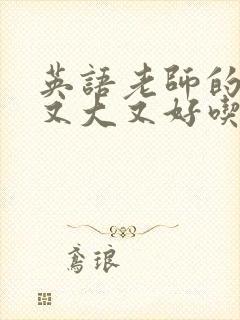 英語老師的
又大又好喫
鸢琅